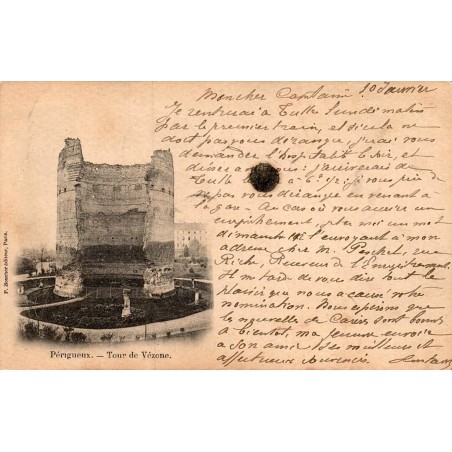 Mon cher Capitaine 10 Janvier
Je rentrerai à Tulle lundi matin
par le premier train, et si cela ne
doit pas vous déranger, j'irai vous
demander l'hospitalité le soir, et
vous : J'arriverais de
Tulle à 6h je vous prie de
pas vous déranger en venant à
la gare. Au cas où vous auriez un
empêchement, mot
dimanche en l'envoyant à mon
adresse chez M. rue
Riche, Receveur de l'Enregistrement.
Il me tarde de vous dire tout le
plaisir que nous a causé votre
nomination. Nous espérons que
les nouvelles de sont bonnes
à bientôt, ma femme envoie
à son amie ses meilleurs et
affectueux
P. Boucher éditeur, Paris.
Périgueux. — Tour de Vézone.